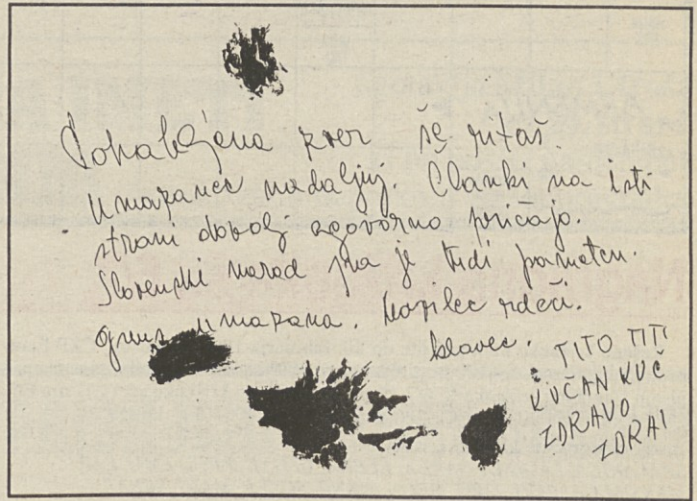 Pohabljena zver še ritaš.
Umazanec nadaljuj. Članki na isti
strani dovolj zgovorno pričajo.
Slovenski narod pa je tudi pameten.
gnus umazana. Morilec rdeči.
klavec.
TITO TITI
KUČAN KUČ
ZDRAVO
ZDRAV